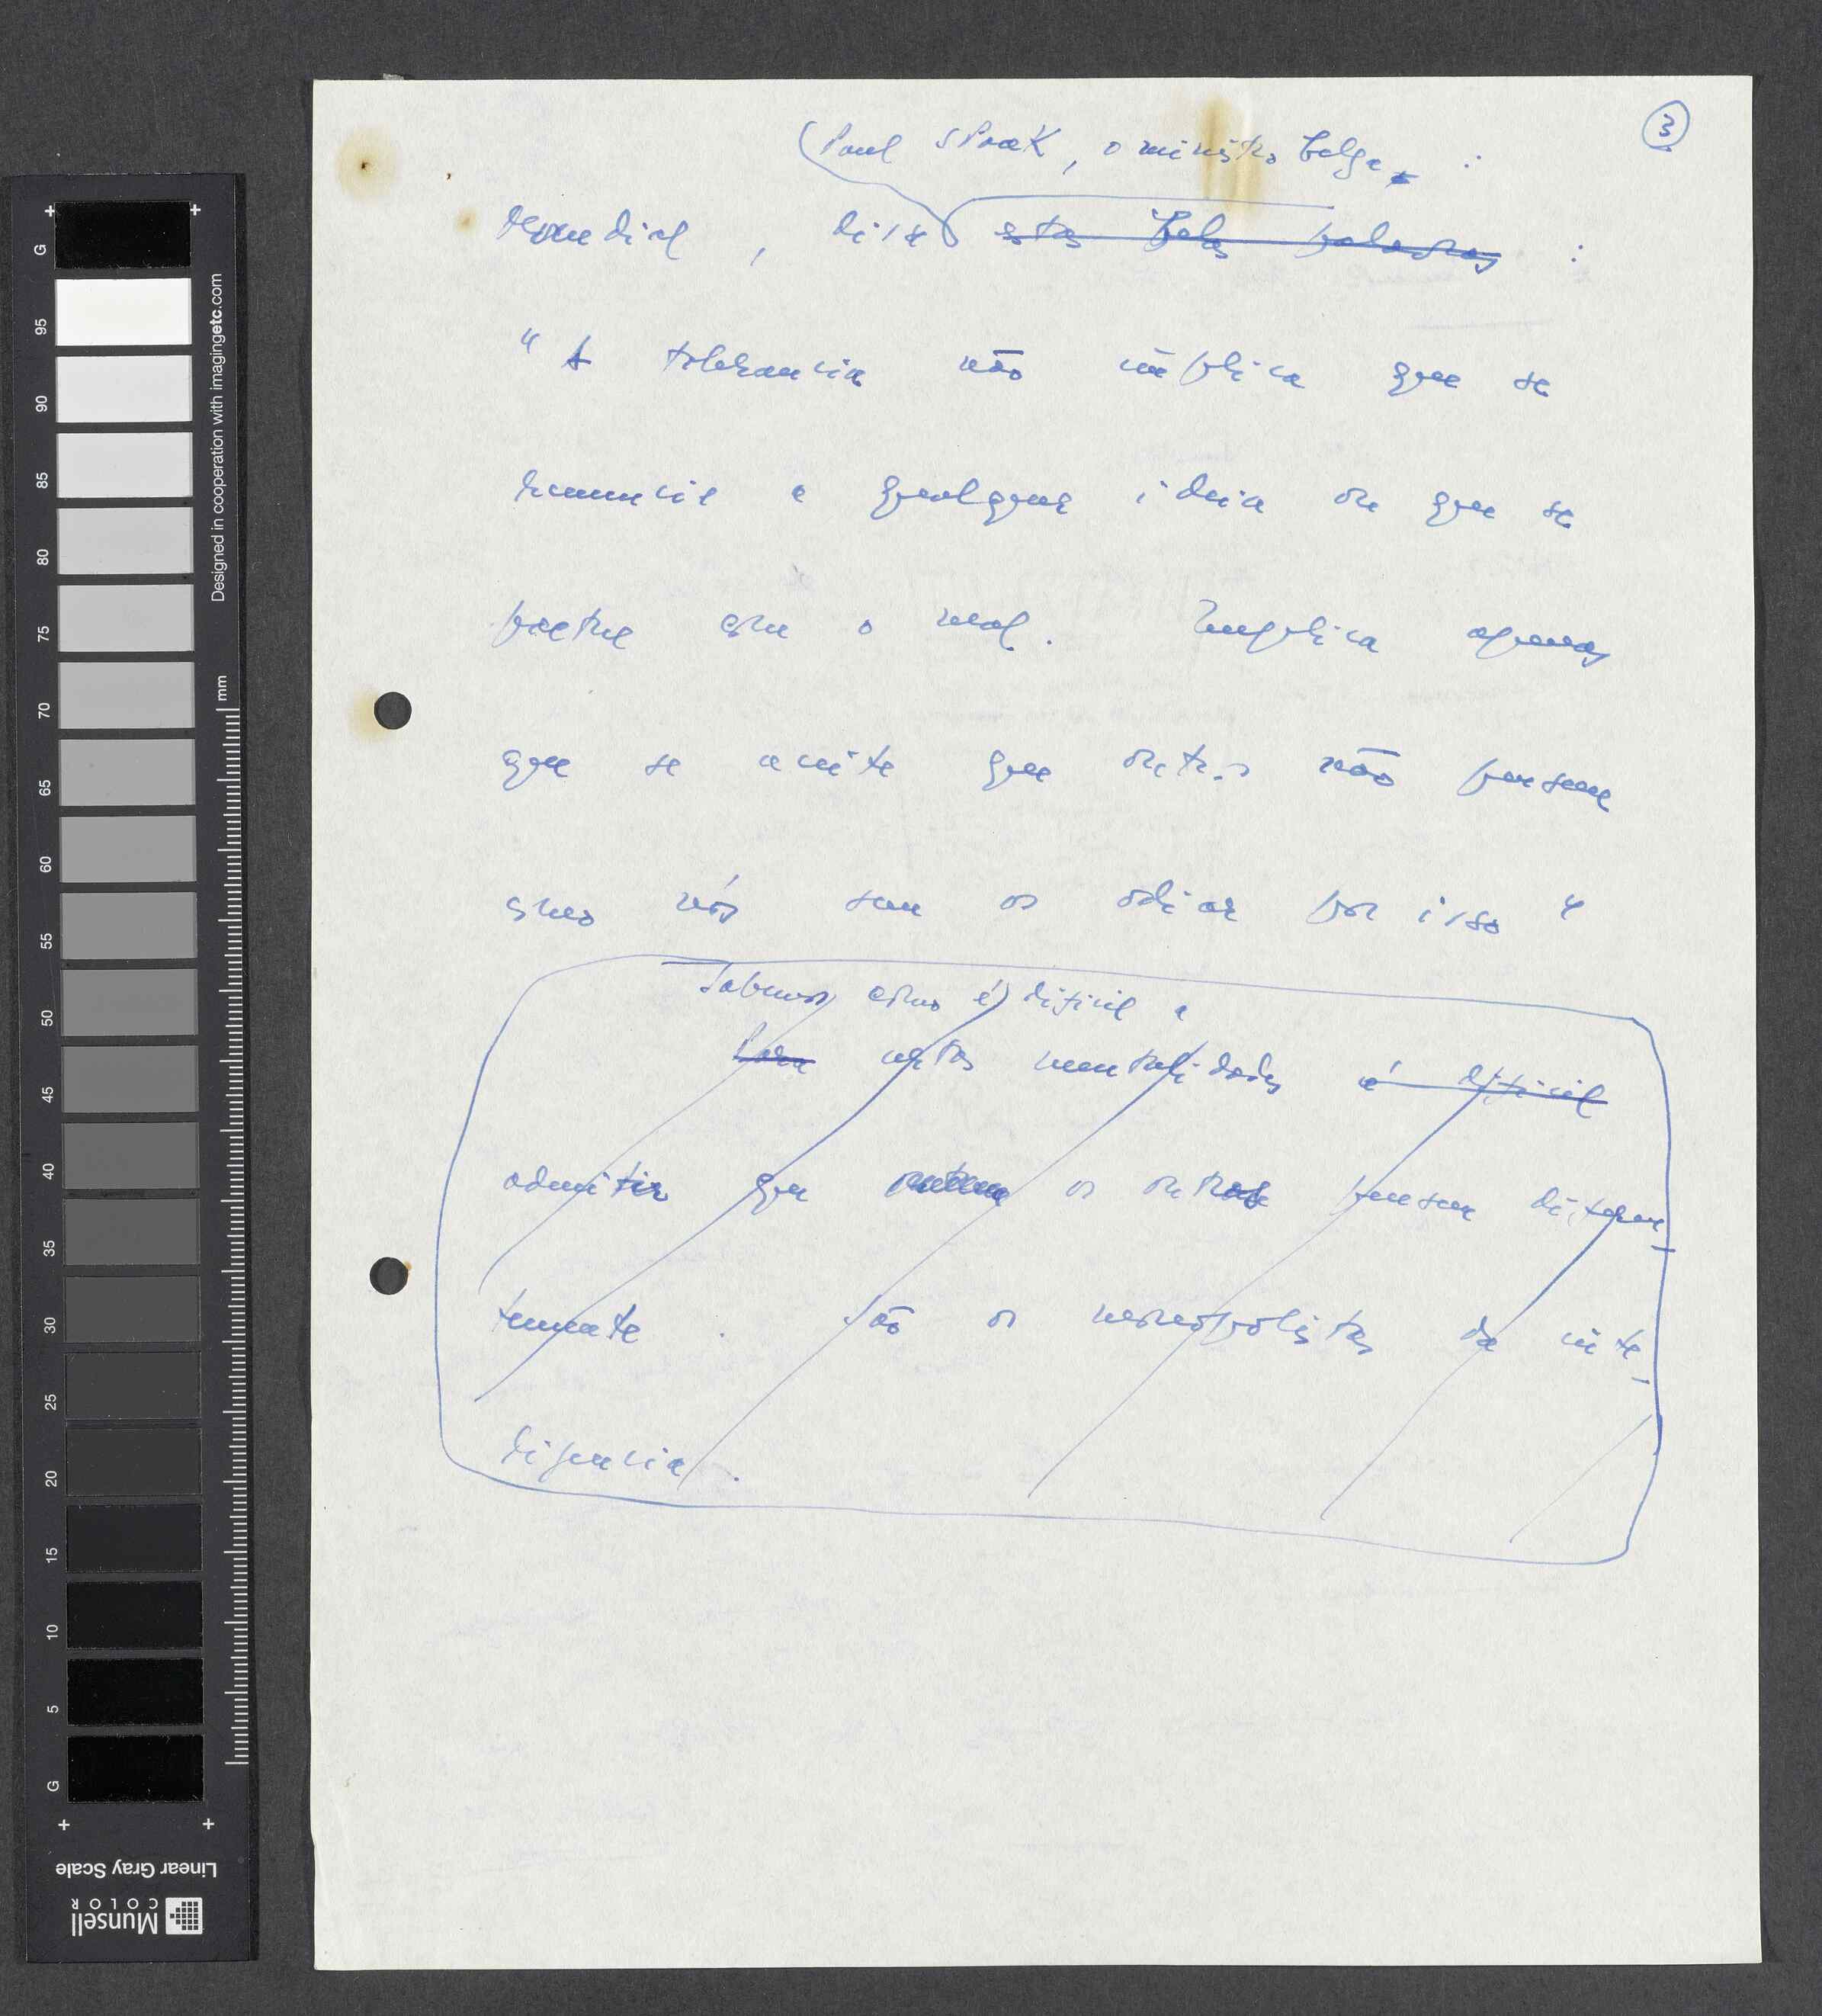 3
Paul Spaak, o ministro belga, :
Mundial, disse estas belas palavras :
" A tolerancia não implica que se
renuncie a qualquer ideia ou que se
pactue com o mal. Implica apenas
que se aceite que outros não pensem
como nós sem os odiar por isso "
Sabemos como é dificil a
Para certas mentalidades é dificil
admitir que os outros pensem diferen-
temente . São os monopolistas da inte-
ligencia .
G
95
90
85
80
75
70
65
60
55
50
45
40
35
30
25
20
15
10
5
G
mm
Designed in cooperation with imagingetc.com
Linear Gray Scale
Munsell
COLOR